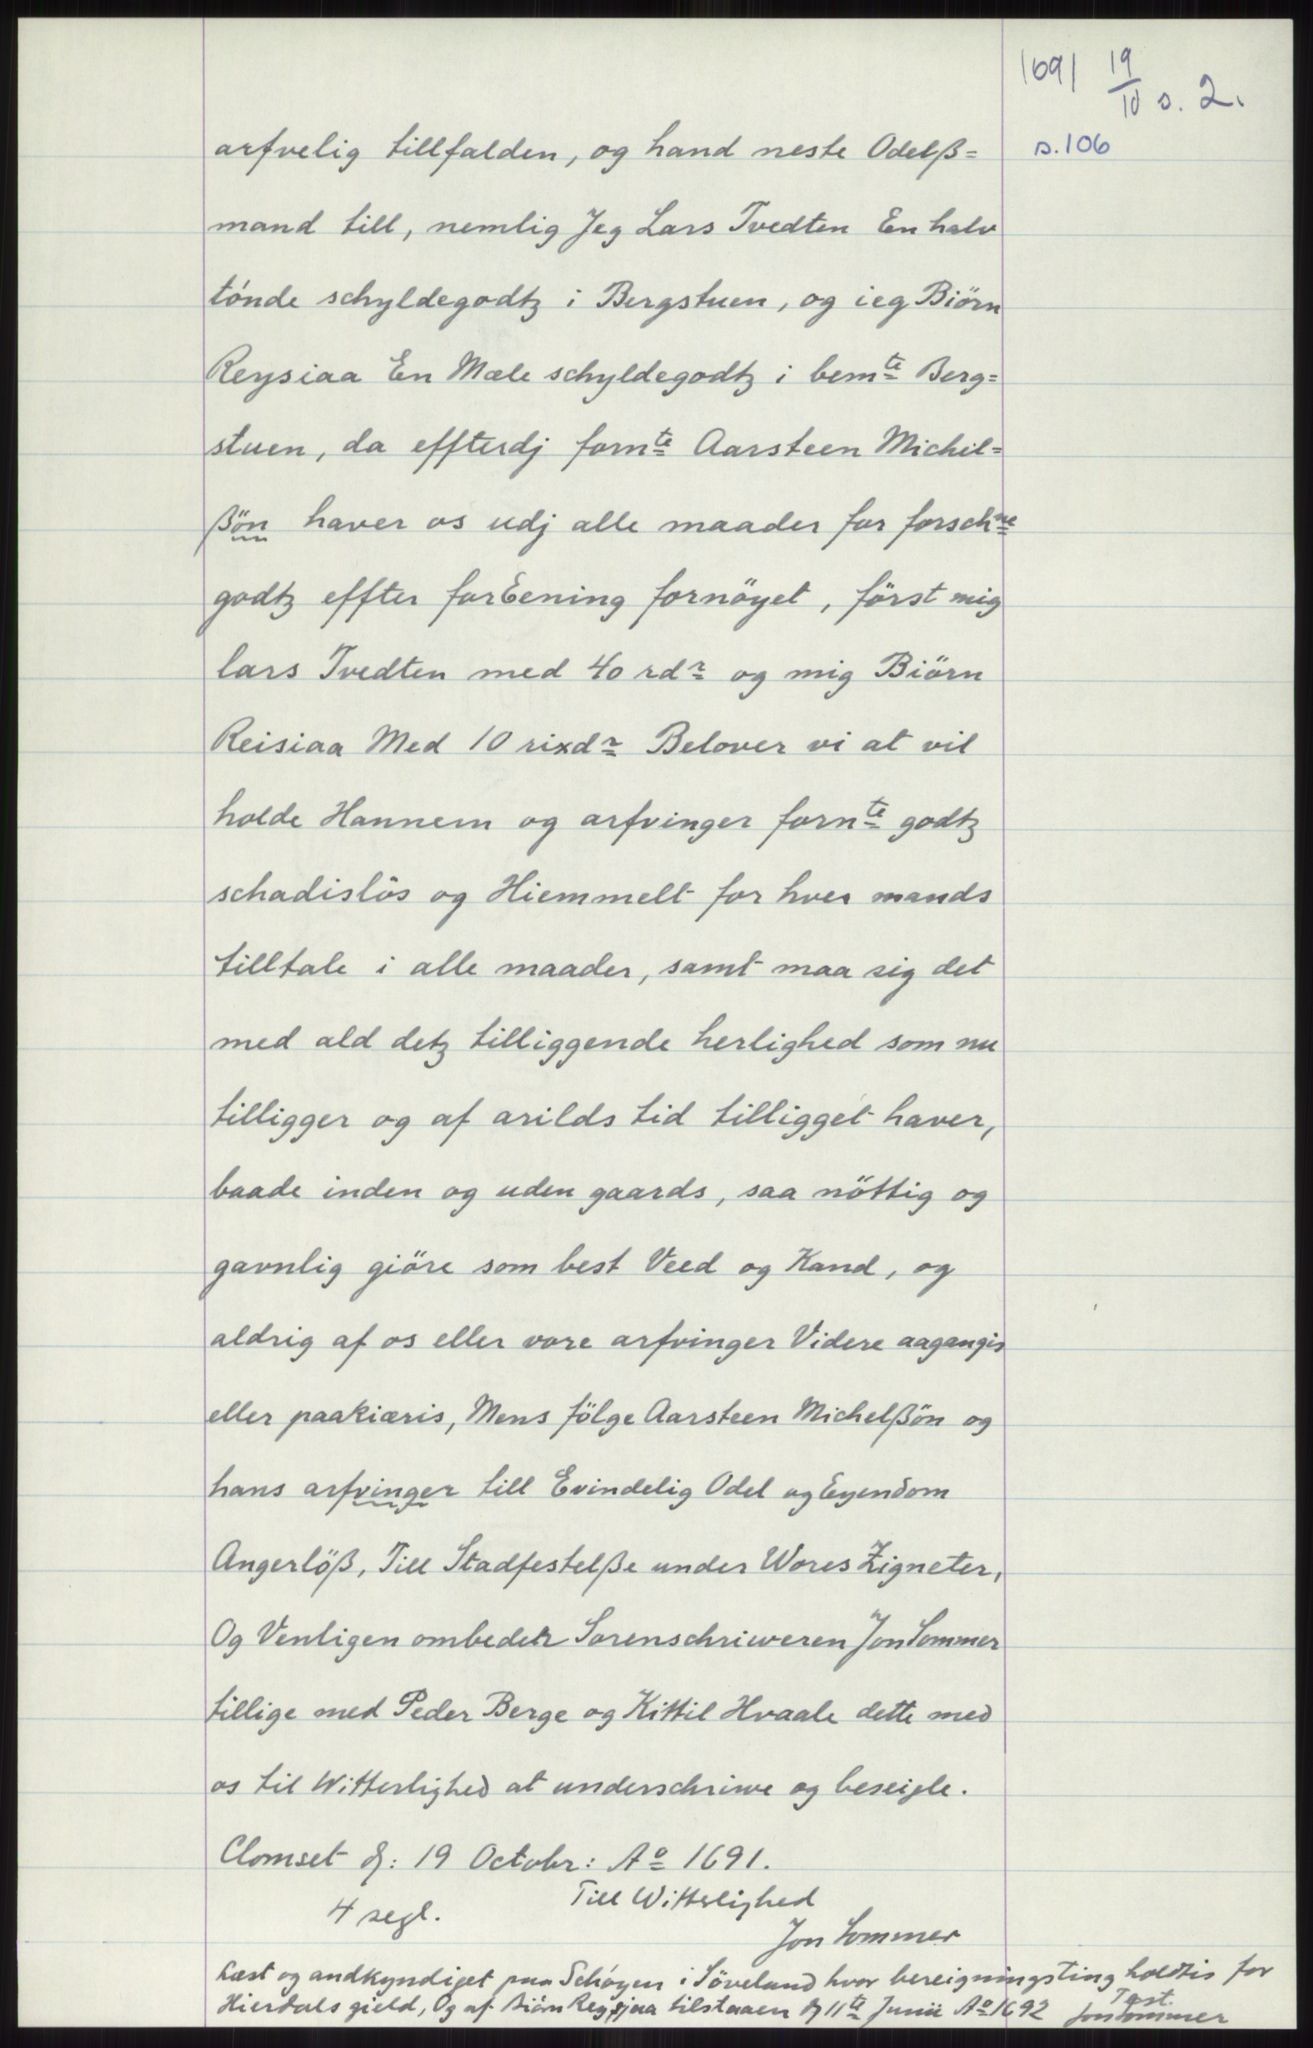 1691 19/10 s. 2.
s. 106
arfvelig tillfalden, og hand neste Odelß=
mand till, nemlig Jeg Lars Tvedten En halv
tónde schyldegodtz i Bergstuen, og ieg Biörn
Reysiaa En Mæle schyldegodtz i bemte Berg=
stuen, da effterdj fornte Aarsteen Michil=
ßön haver os udj alle maader for forschne
godtz effter forEening fornöyet, först mig
lars Tvedten med 40 rdr og mig Biörn
Reisiaa Med 10 rixdr Belover vi at vil
holde Hannem og arfvinger fornte godtz
schadislös og Hiemmelt for hver mands
tilltale i alle maader, samt maa sig det
med ald detz tilliggende herlighed som nu
tilligger og af arilds tid tilligget haver,
baade inden og uden gaards, saa nöttig og
gavnlig giöre som best Veed og Kand, og
aldrig af os eller vore arfvinger Videre aagangis
eller paakiæris, Mens fölge Aarsteen Michelßön og
hans arfvinger till Evindelig Odel og Eyendom
Angerlöß, Till Stadfestelße under Wores Zigneter,
Og Venligen ombedet Sorenschriweren Jon Sommer
tillige med Peder Berge og Kittil Hvaale dette med
os til Witterlighed at underschriwe og beseigle.
Clomset d: 19 Octobr: Ao 1691.
Till Witterlighed
4 segl.
Jon Sommer
Læst og andkyndiget paa Schóyen i Söveland hvor bereigningsting holdtis for
Hierdals gield, Og af Biörn Reysjaa tilstaaen d 11te Junii Ao 1692 Test.
Jon Sommer